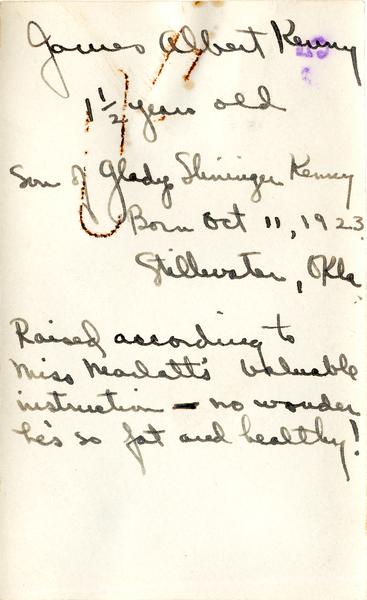 James Albert Kenny
1 1/2 years old
Son of Gladys Slininger Kenny
Born Oct 11, 1923
Stillwater, Okla
Raised according to
Miss Marlatt's valuable
instruction — no wonder
he's so fat and healthy!